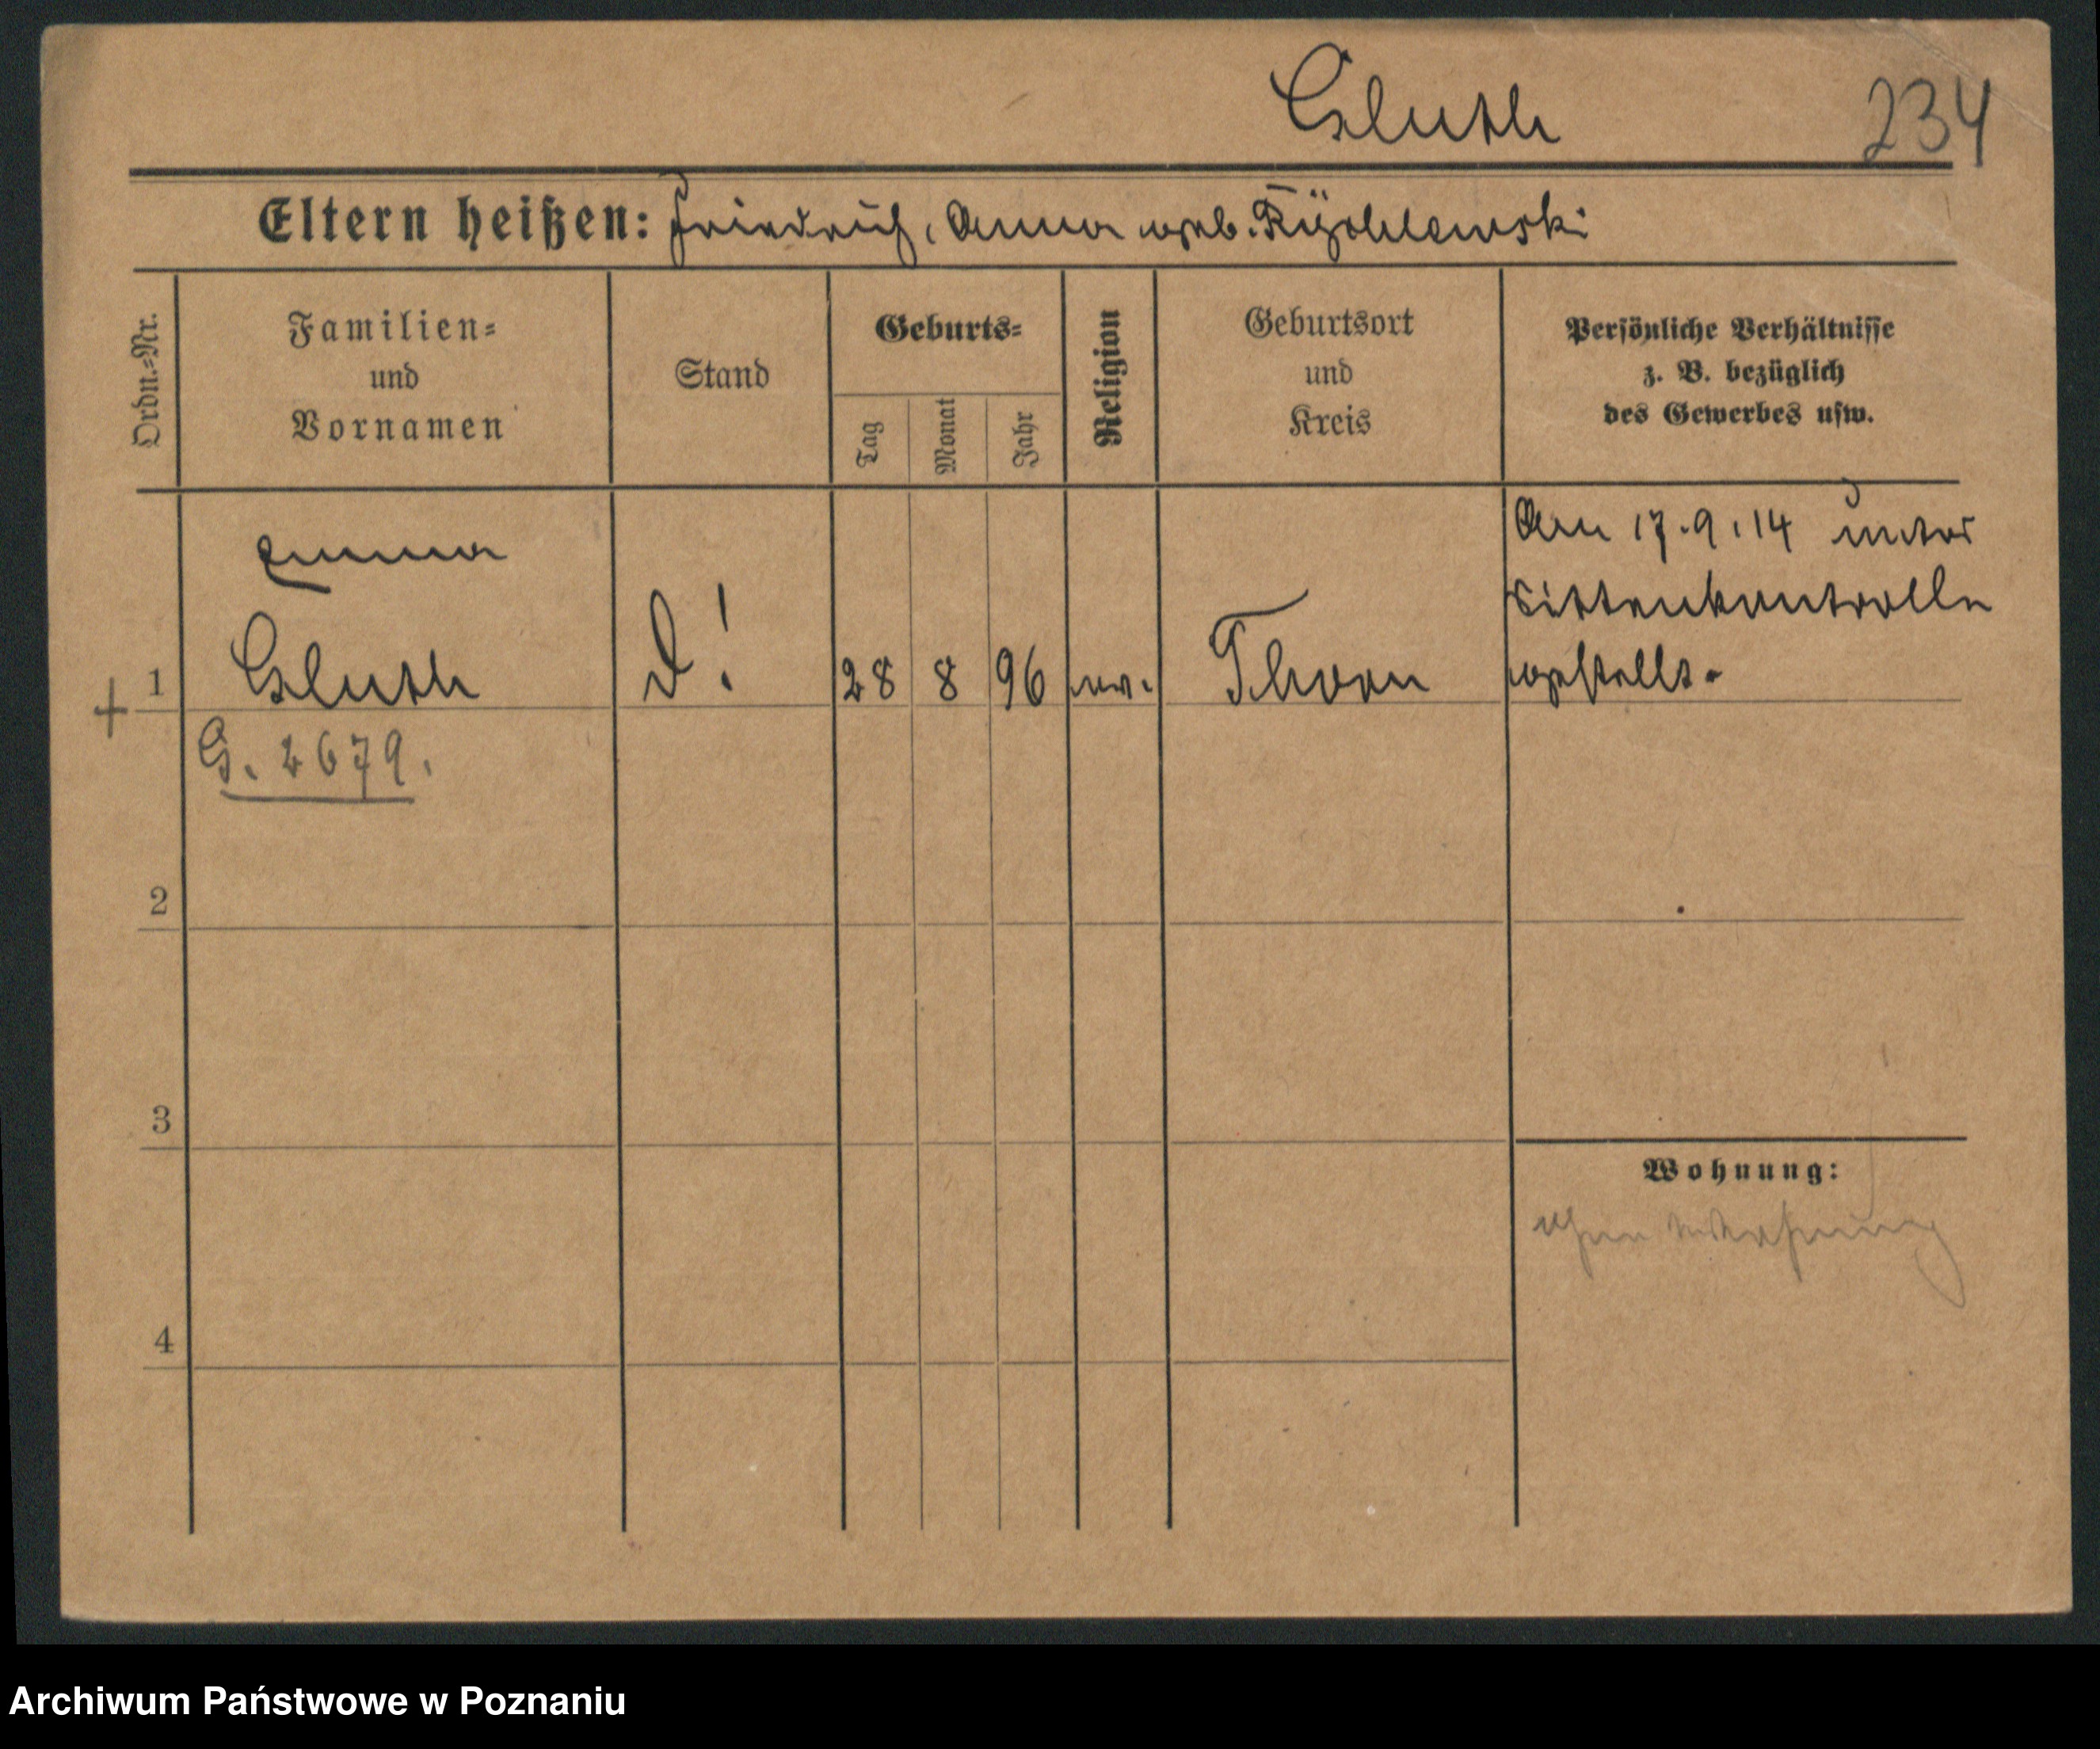 Gluth 234
Eltern heißen: Friedrich, Anna geb.
Ordn.=Nr.
Familien=
und
Vornamen
Stand
Geburts=
Tag
Monat
Jahr
Religion
Geburtsort
und
Kreis
Persönliche Verhältnisse
z. B. bezüglich
des Gewerbes usw.
Emma
Am 17.9.14 unter
Sittenkontrolle
+ 1 Gluth D! 28 8 96 ev. Thorn gestellt.
G. 2679.
2
3
Wohnung:
ohne Wohnung
4
Archiwum Państwowe w Poznaniu